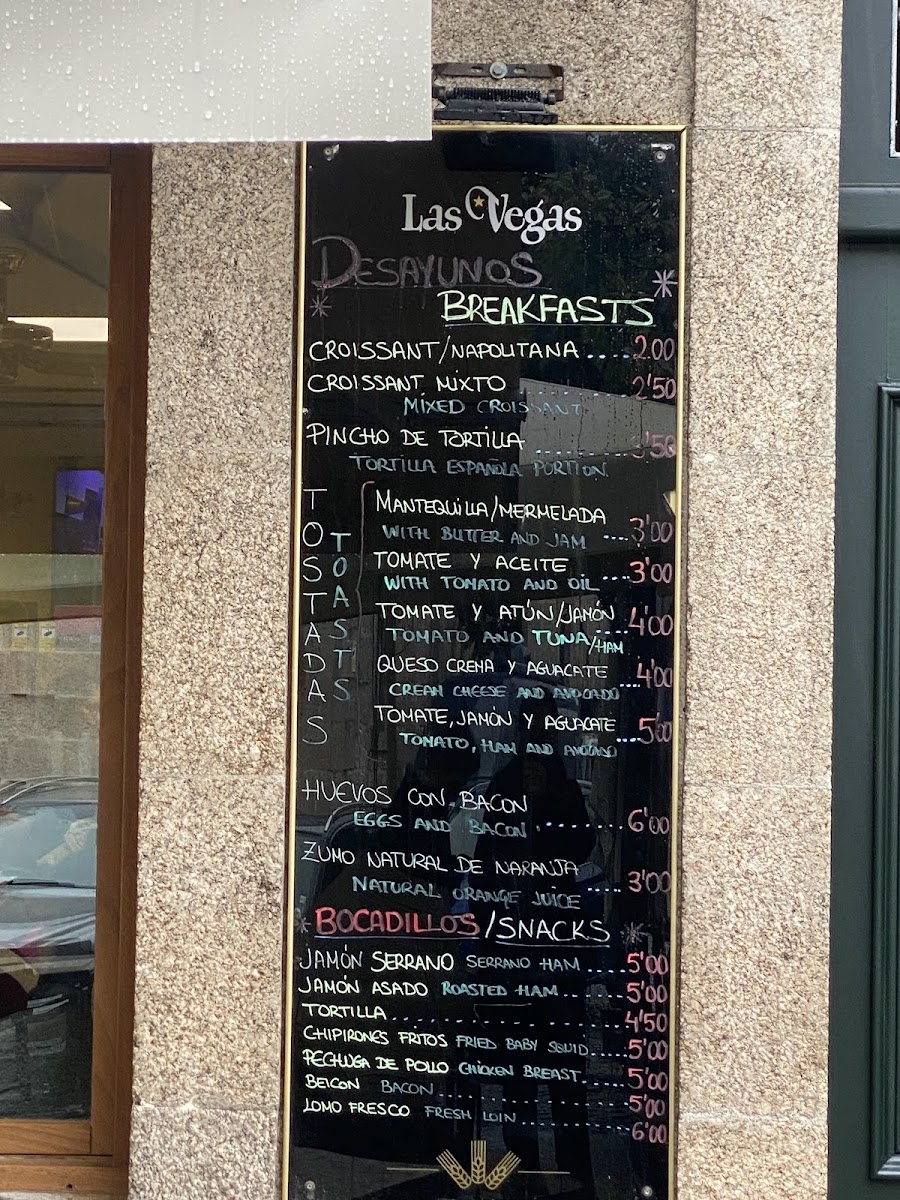 Las Vegas
DESAYUNOS
BREAKFASTS
CROISSANT/NAPOLITANA ..... 2.00
CROISSANT MIXTO ..... 2'50
MIXED CROISSANT
PINCHO DE TORTILLA ..... 3'50
TORTILLA ESPAÑOLA PORTION
TOSTADAS
TOASTS
MANTEQUILLA/MERMELADA
WITH BUTTER AND JAM .... 3'00
TOMATE Y ACEITE
WITH TOMATO AND OIL .... 3'00
TOMATE Y ATÚN/JAMÓN
TOMATO AND TUNA/HAM ..... 4'00
QUESO CREMA Y AGUACATE
CREAM CHEESE AND AVOCADO ... 4'00
TOMATE, JAMÓN Y AGUACATE
TOMATO, HAM AND AVOCADO .... 5'00
HUEVOS CON BACON
EGGS AND BACON ......... 6'00
ZUMO NATURAL DE NARANJA
NATURAL ORANGE JUICE ..... 3'00
BOCADILLOS/SNACKS
JAMÓN SERRANO SERRANO HAM ..... 5'00
JAMÓN ASADO ROASTED HAM ...... 5'00
TORTILLA ..................... 4'50
CHIPIRONES FRITOS FRIED BABY SQUID ..... 5'00
PECHUGA DE POLLO CHICKEN BREAST ..... 5'00
BEICON BACON .................. 5'00
LOMO FRESCO FRESH LOIN ............ 6'00